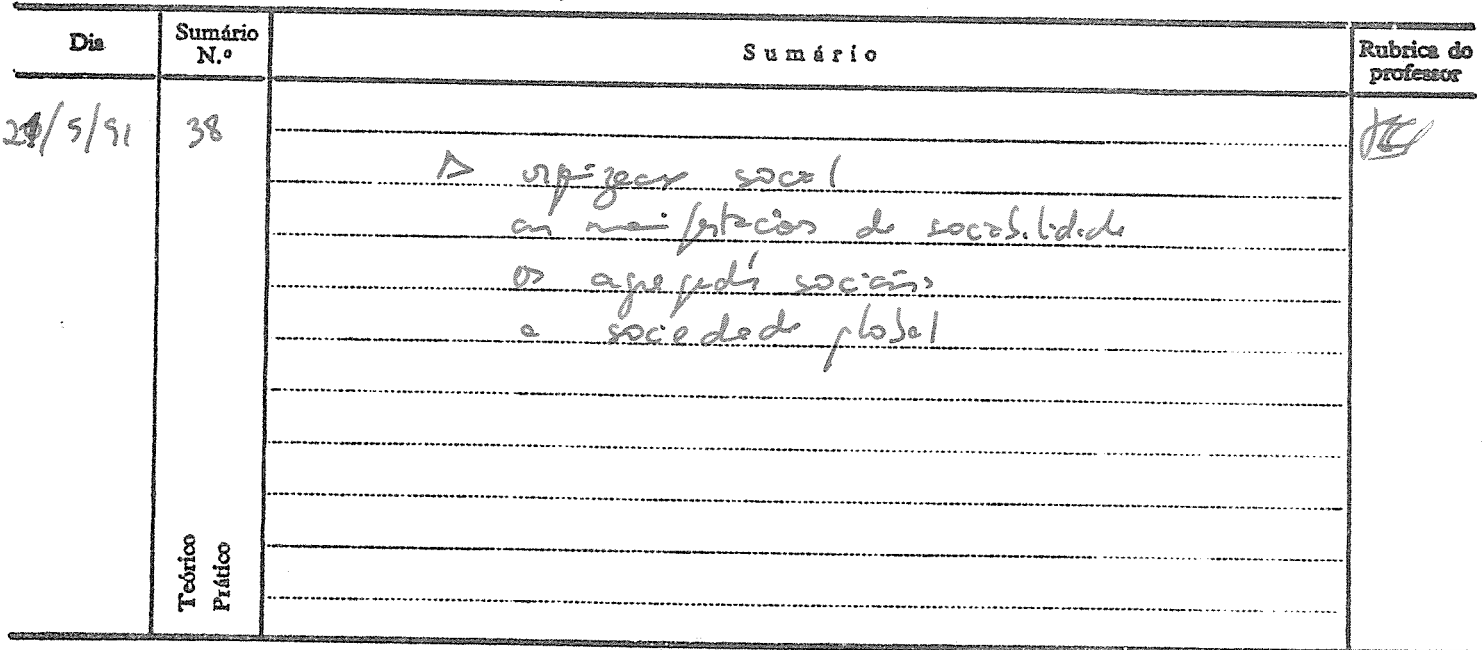 Dia Sumário N.º Sumário Rubrica do professor
21/5/91 38
A organização social
as manifestações de sociabilidade
os agregados sociais
a sociedade global
Teórico
Prático